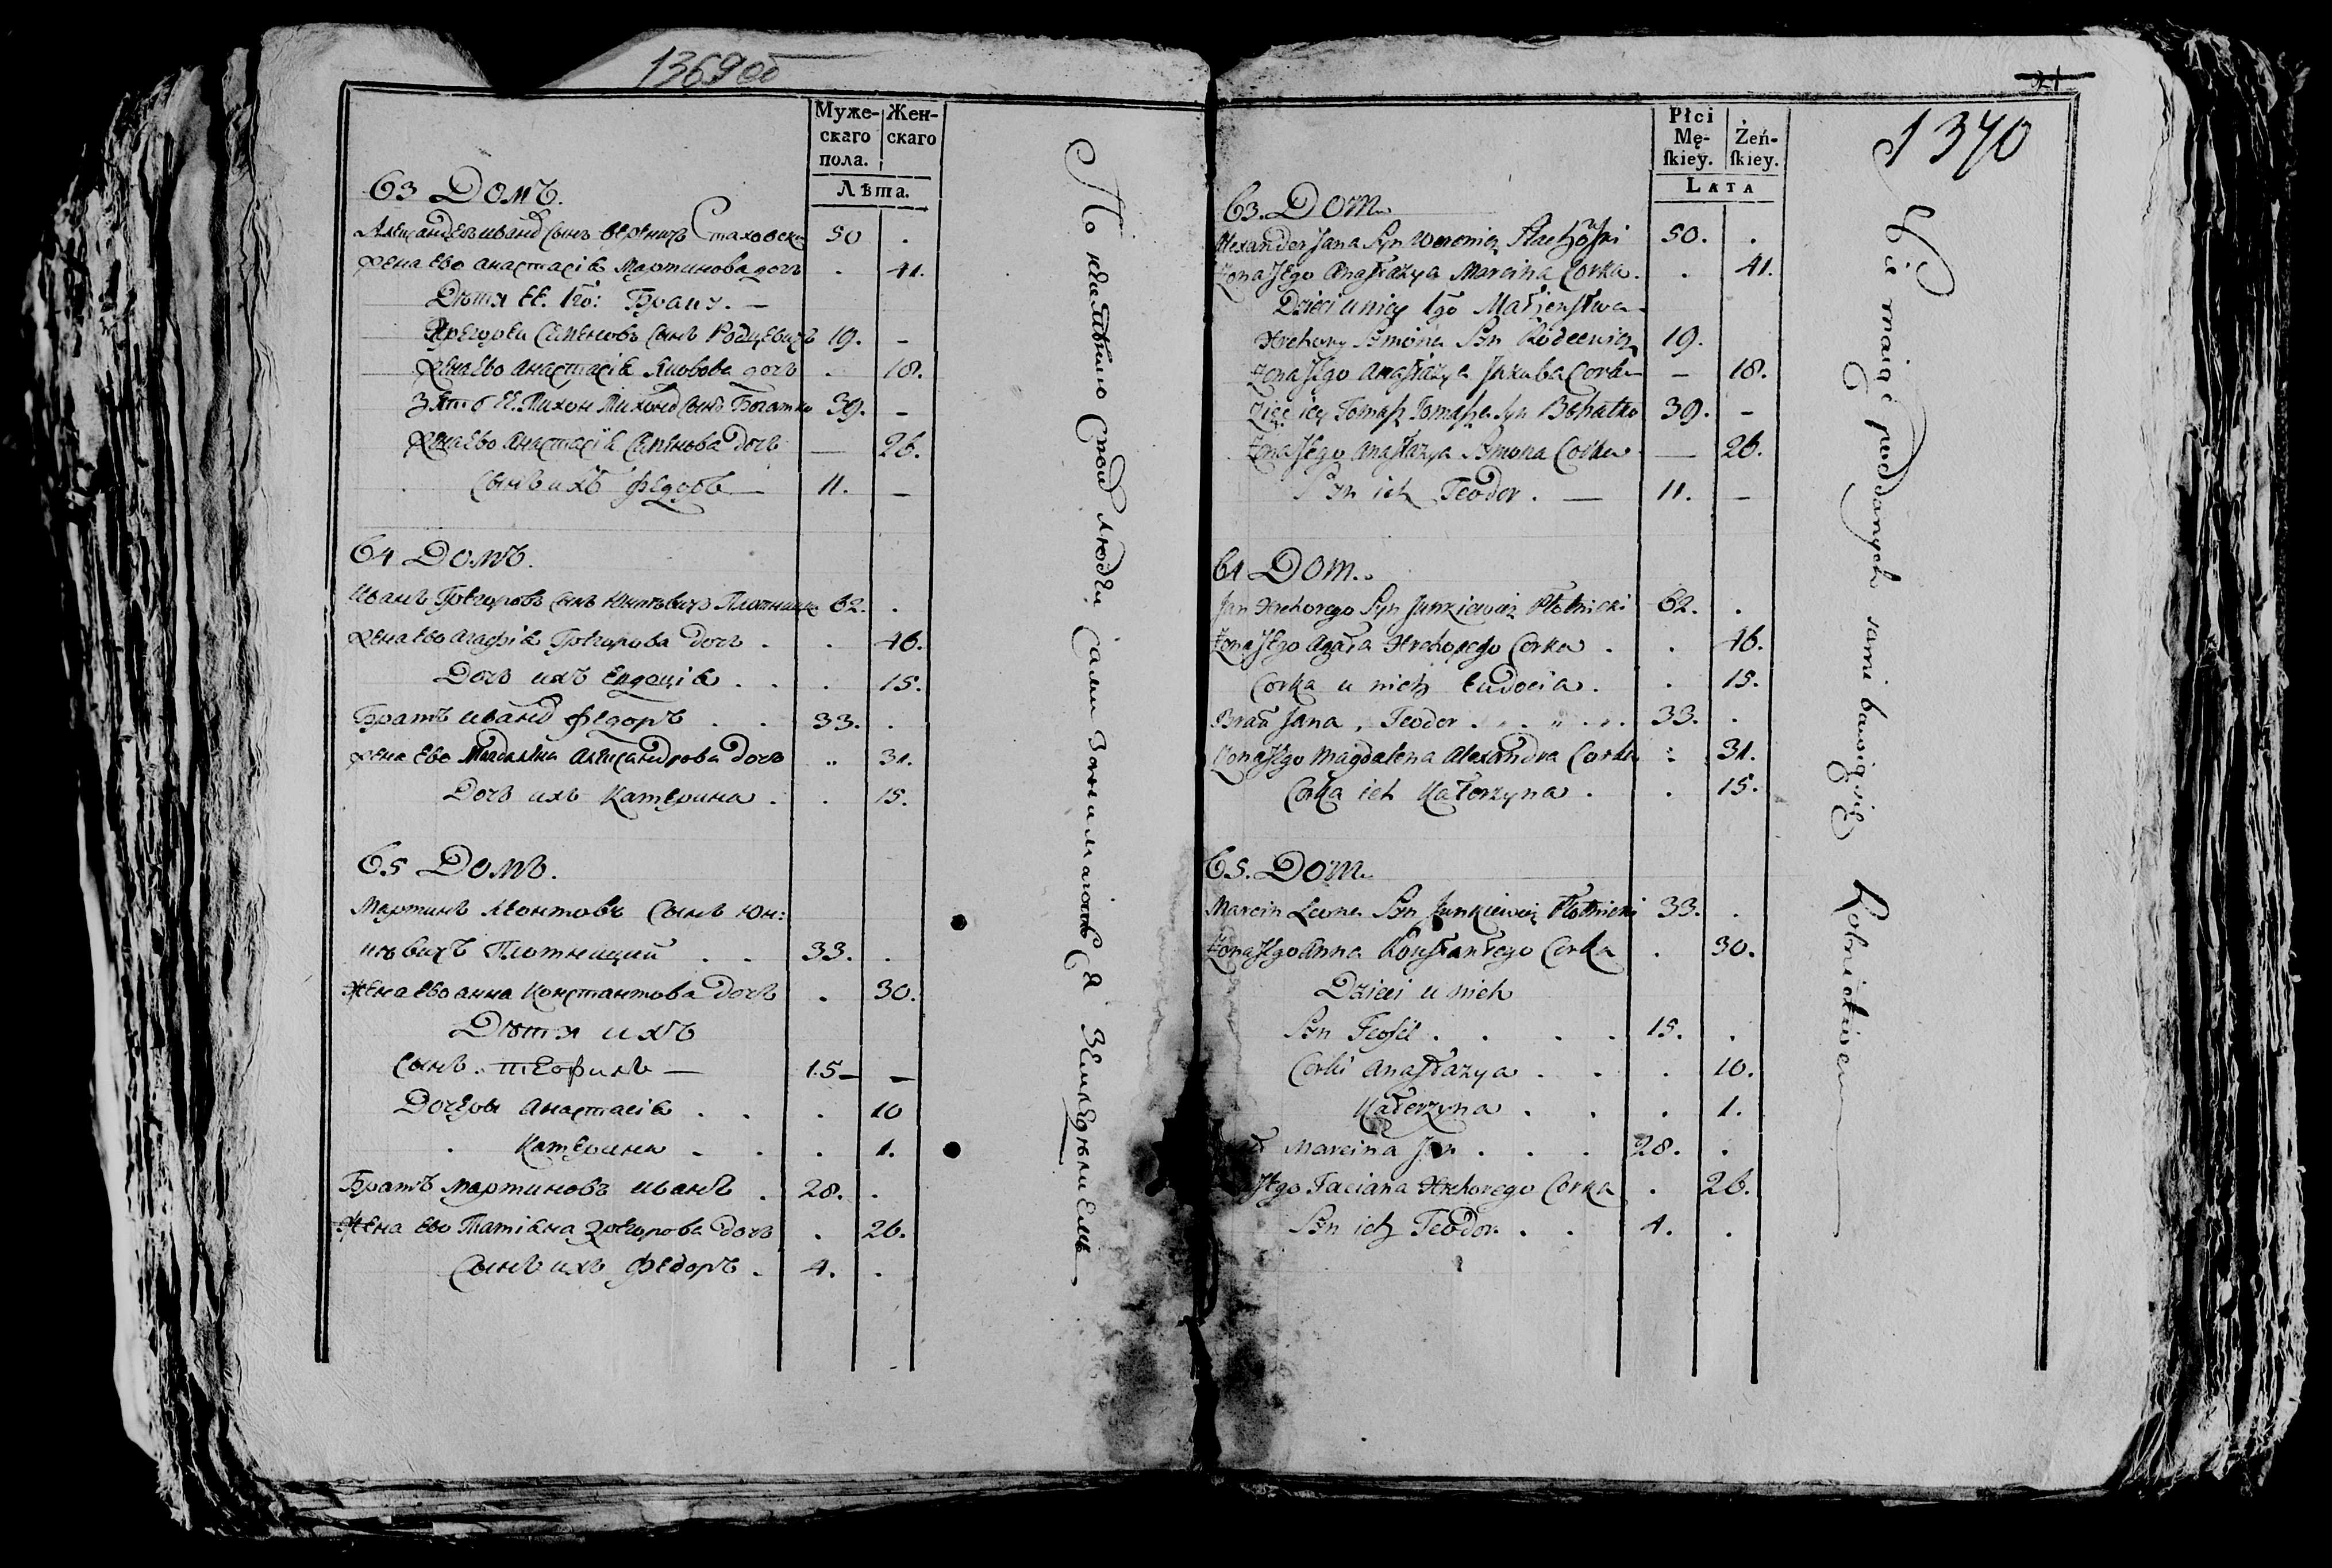 1369об
Муже-
скаго
пола.
Жен-
скаго
Лѣта.
63 Домъ.
Александеръ Иванов Сынъ Вереничъ Стаховски 50 .
Жена Ево Анастасія Мартинова дочь . 41.
Дѣтя ее. 1го: Браку. —
Грегорей Семеновъ Сынъ Родцевичъ 19. –
Жена Ево Анастасія Якубова дочь . 18.
Зять Ее. Тихон Тихонов Сынъ Богатко 39. –
Жена Ево Анастасія Семенова Дочь — 26.
Сынъ ихъ Федоръ — 11. –
64 Домъ.
Иванъ Грегоровъ сынъ Юнкевичъ Плотницк 62. .
Жена Ево Агафія Грегорова Дочь . . 46.
Дочь ихъ Евдоція . . . 15.
Братъ Иванов Федоръ . . 33. .
Жена Ево Магдалена Александрова Дочь .. 31.
Дочь ихъ Катерина . . 15.
65 Домъ.
Мартинъ Леонтовъ Сынъ Юн:
кѣвичъ Плотницкий . . 33. .
Жена Ево Анна Константова Дочь . 30.
Дѣтя ихъ
Сынъ. Теофилъ — 15– –
Дочеры Анастасія . . . 10
Катерина . . . 1.
Братъ Мартиновъ Иванъ . 28. .
Жена Ево Татіана Грегорова дочь . 26.
Сынъ ихъ Федоръ . 4. .
По неимѣнию Своих людей Сами Занимаютъ Ся Земледѣлиемъ
21
1370
Płci
Mę-
ſkiey.
Żeń-
ſkiey.
LATA
63. Dom
Alexander Jana Syn Werenicz Stachoſki 50. .
Zona Jego Anaſtazya Marcina Corka . . 41.
Dzieci u niey 1go Małzenſtwa
Hrehory Symona Syn Rodcewicz 19.
Zona Jego Anaſtazya Jakuba Corka – 18.
Zięć iey Tomaſz Tomaſza Syn Bohatko 39. –
Zona Jego Anaſtazya Symona Corka — 26.
Syn ich Teodor . — 11. –
64 Dom.
Jan Hrehorego Syn Junkiewicz Płotnicki 62. .
Zona Jego Agata Hrehorego Corka . . 46.
Corka u nich Eudocia . . 15.
Brat Jana, Teodor . . . . . 33. .
Zona Jego Magdalena Alexandra Corka : 31.
Corka ich Katerzyna . . 15.
65. Dom
Marcin Leona Syn Junkiewicz Płotnicki 33. .
Zona Jego Anna Konſtantego Corka . 30.
Dzieci u nich
Syn Teofil . . . . 15. .
Corki Anaſtazya . . . 10.
Katerzyna . . . 1.
Marcina Jan . . . 28. .
Jego Taciana Hrehorego Corka . 26.
Syn ich Teodor . . 4. .
Nie maiąc poddanych sami bawią się Rolnictwem